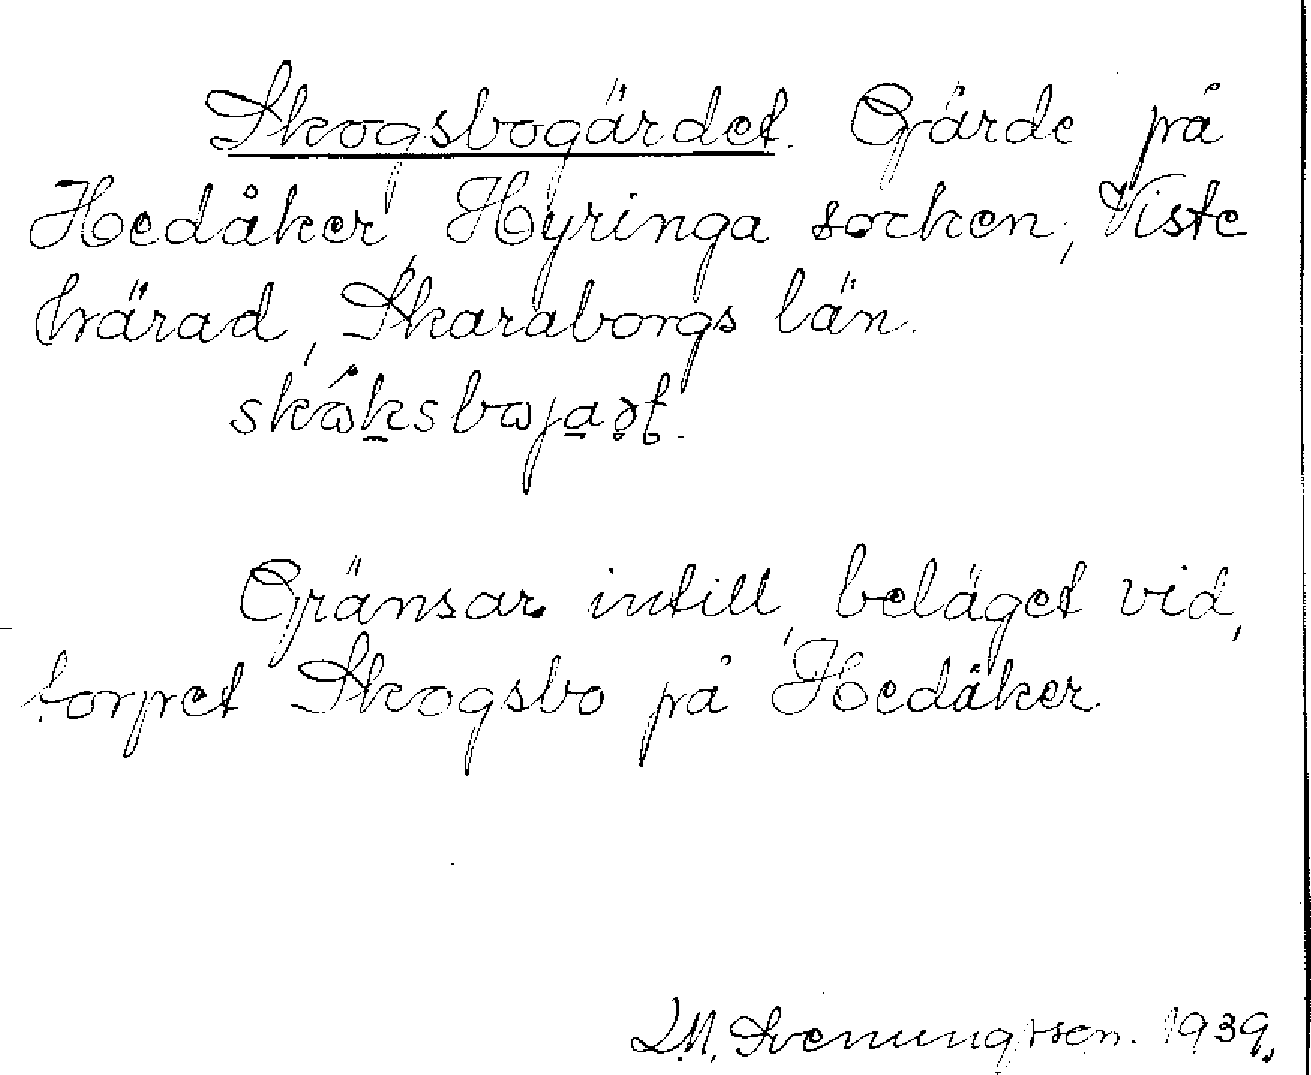 Skogsbogärdet. Gärde på
Hedåker, Hyringa socken, Viste
härad, Skaraborgs län.
skɷ́ksbɷjaət.
Gränsar intill, beläget vid,
torpet Skogsbo på Hedåker.
L.M. Svenungsson. 1939.